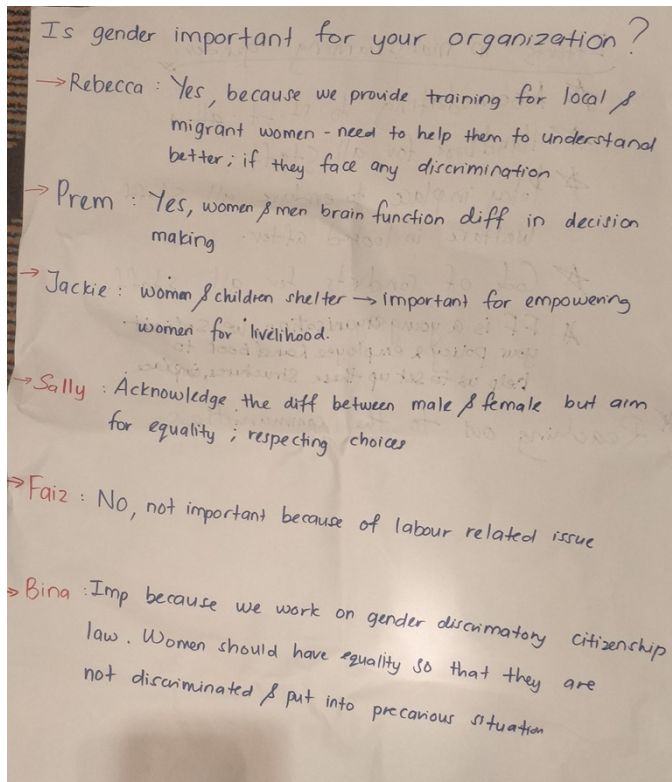 Is gender important for your organization?
→ Rebecca : Yes, because we provide training for local &
migrant women - need to help them to understand
better; if they face any discrimination
→ Prem : Yes, women & men brain function diff in decision
making
→ Jackie : women & children shelter → important for empowering
women for livelihood.
→ Sally : Acknowledge the diff between male & female but aim
for equality ; respecting choices
→ Faiz : No, not important because of labour related issue
→ Bina : Imp because we work on gender discrimatory citizenship
law. Women should have equality so that they are
not discriminated & put into precarious situation